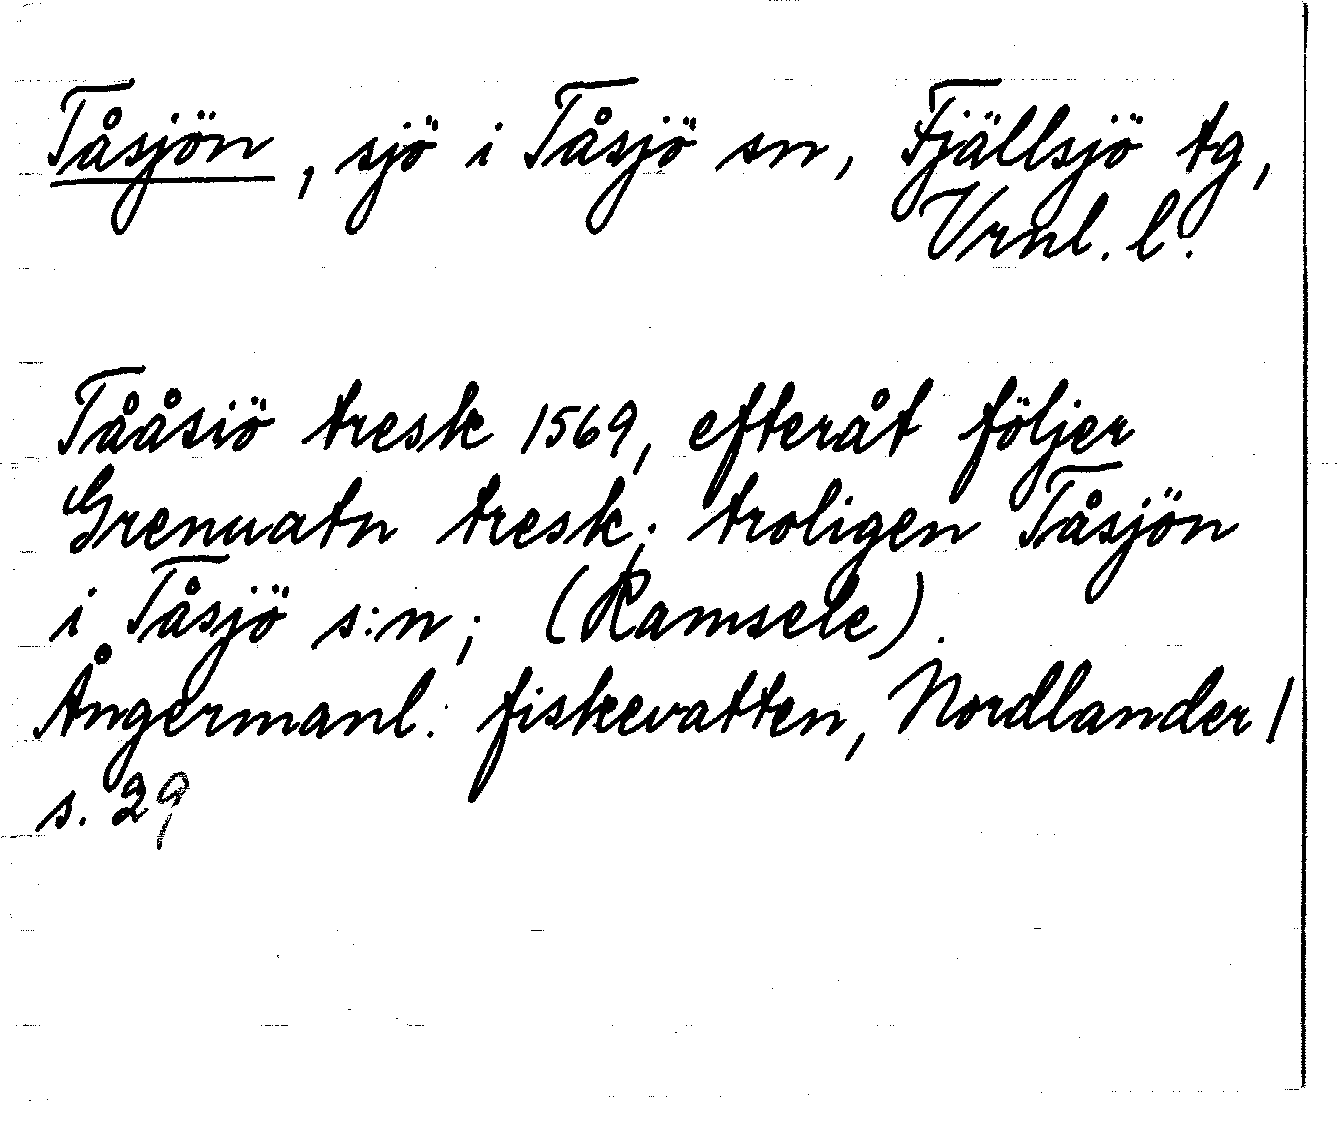 Tåsjön, sjö i Tåsjö sn, Fjällsjö tg,
Vrnl. l.
Tååsiö tresk 1569, efteråt följer
Grenuatn tresk; troligen Tåsjön
i Tåsjö s:n; (Ramsele).
Ångermanl. fiskevatten, Nordlander 1
s. 29